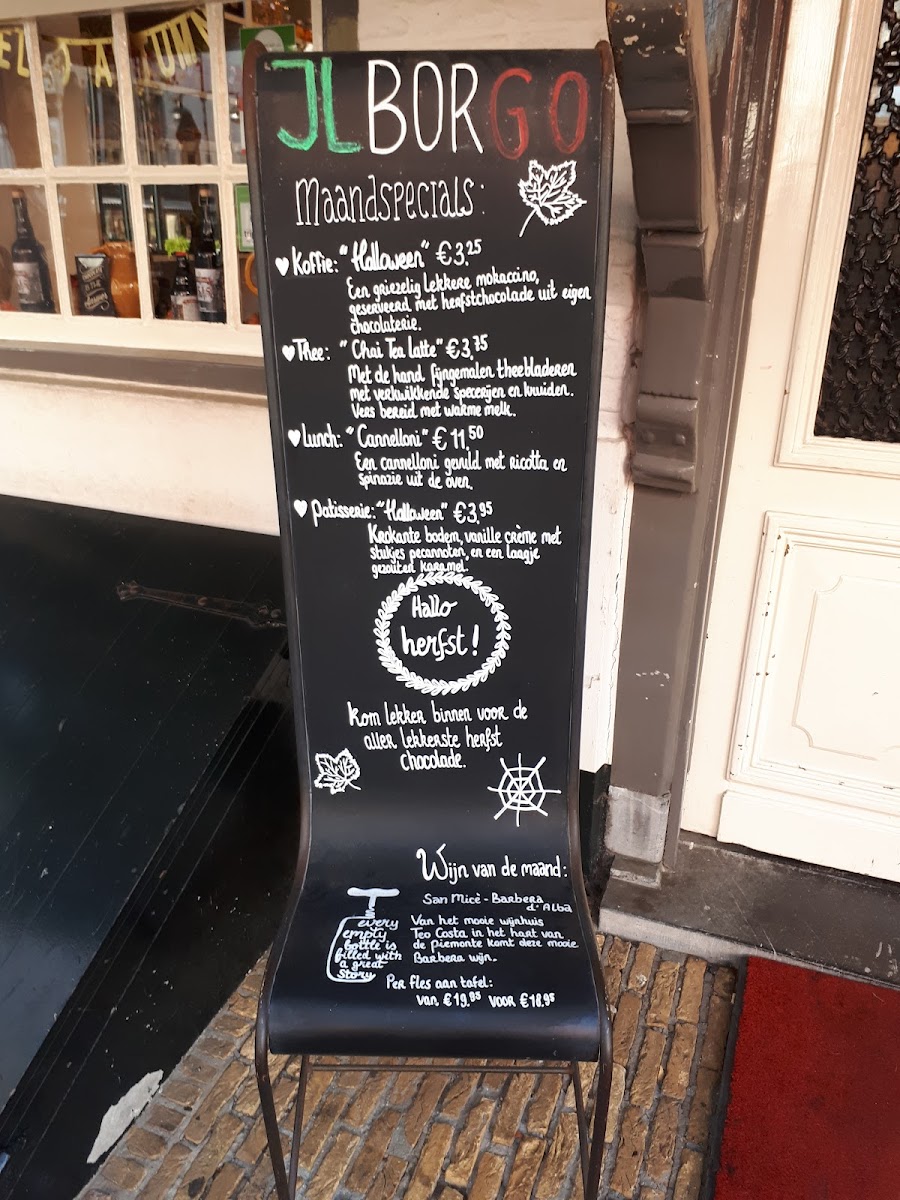 JL BORGO
Maandspecials:
Koffie: "Halloween" €3,25
Een griezelig lekkere mokaccino,
geserveerd met herfstchocolade uit eigen
chocolaterie.
Thee: "Chai Tea Latte" €3,75
Met de hand fijngemalen theebladeren
met verkwikkende specerijen en kruiden.
Vers bereid met warme melk.
Lunch: "Cannelloni" € 11,50
Een cannelloni gevuld met ricotta en
spinazie uit de oven.
Patisserie: "Halloween" €3,95
Krokante bodem, vanille crème met
stukjes pecannoten, en een laagje
gezouten karamel.
Hallo
herfst!
Kom lekker binnen voor de
aller lekkerste herfst
chocolade.
Wijn van de maand:
San Micè - Barbera
d'Alba
every
empty
bottle is
filled with
a great
story
Van het mooie wijnhuis
Teo Costa in het hart van
de Piemonte komt deze mooie
Barbera wijn.
Per fles aan tafel:
van €19.95 voor €18.95